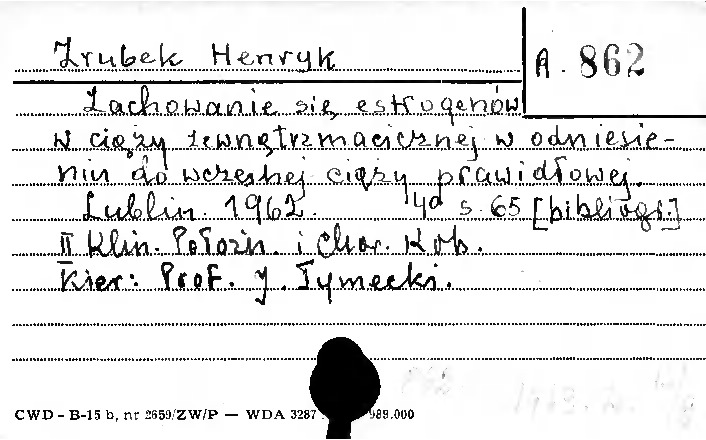 Zrubek Henryk
A. 862
Zachowanie się estrogenów
w ciąży zewnętrzmacicznej w odniesie-
niu do wczesnej ciąży prawidłowej.
Lublin. 1962. 4° s. 65 [bibliogr.]
II Klin. Położn. i Chor. Kob.
Kier: Prof. J. Tymecki.
CWD - B-15 b, nr 2659/ZW/P — WDA 3287 989.000